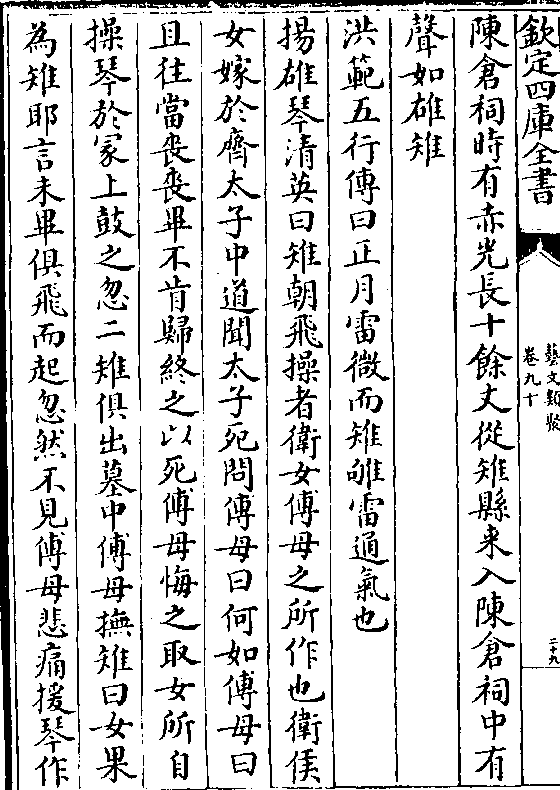 欽定四庫全書
藝文類聚
卷九十
二十九
陳倉祠時有赤光長十餘丈從雉縣來入陳倉祠中有
聲如雄雉
洪範五行傳曰正月雷微而雉雊雷通氣也
揚雄琴清英曰雉朝飛操者衛女傅母之所作也衛侯
女嫁於齊太子中道聞太子死問傅母曰何如傅母曰
且往當喪喪畢不肯歸終之以死傅母悔之取女所自
操琴於冢上鼓之忽二雉俱出墓中傅母撫雉曰女果
為雉耶言未畢俱飛而起忽然不見傅母悲痛援琴作